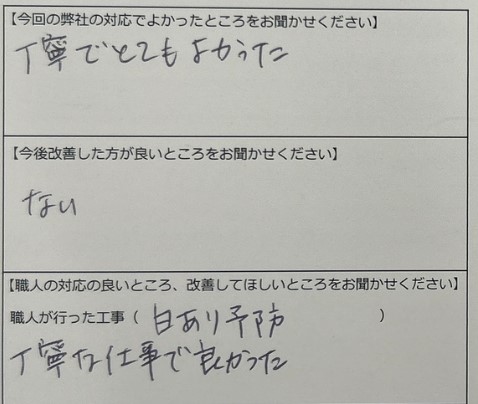 【今回の弊社の対応でよかったところをお聞かせください】
丁寧でとてもよかった
【今後改善した方が良いところをお聞かせください】
ない
【職人の対応の良いところ、改善してほしいところをお聞かせください】
職人が行った工事（ 白あり予防 ）
丁寧な仕事で良かった